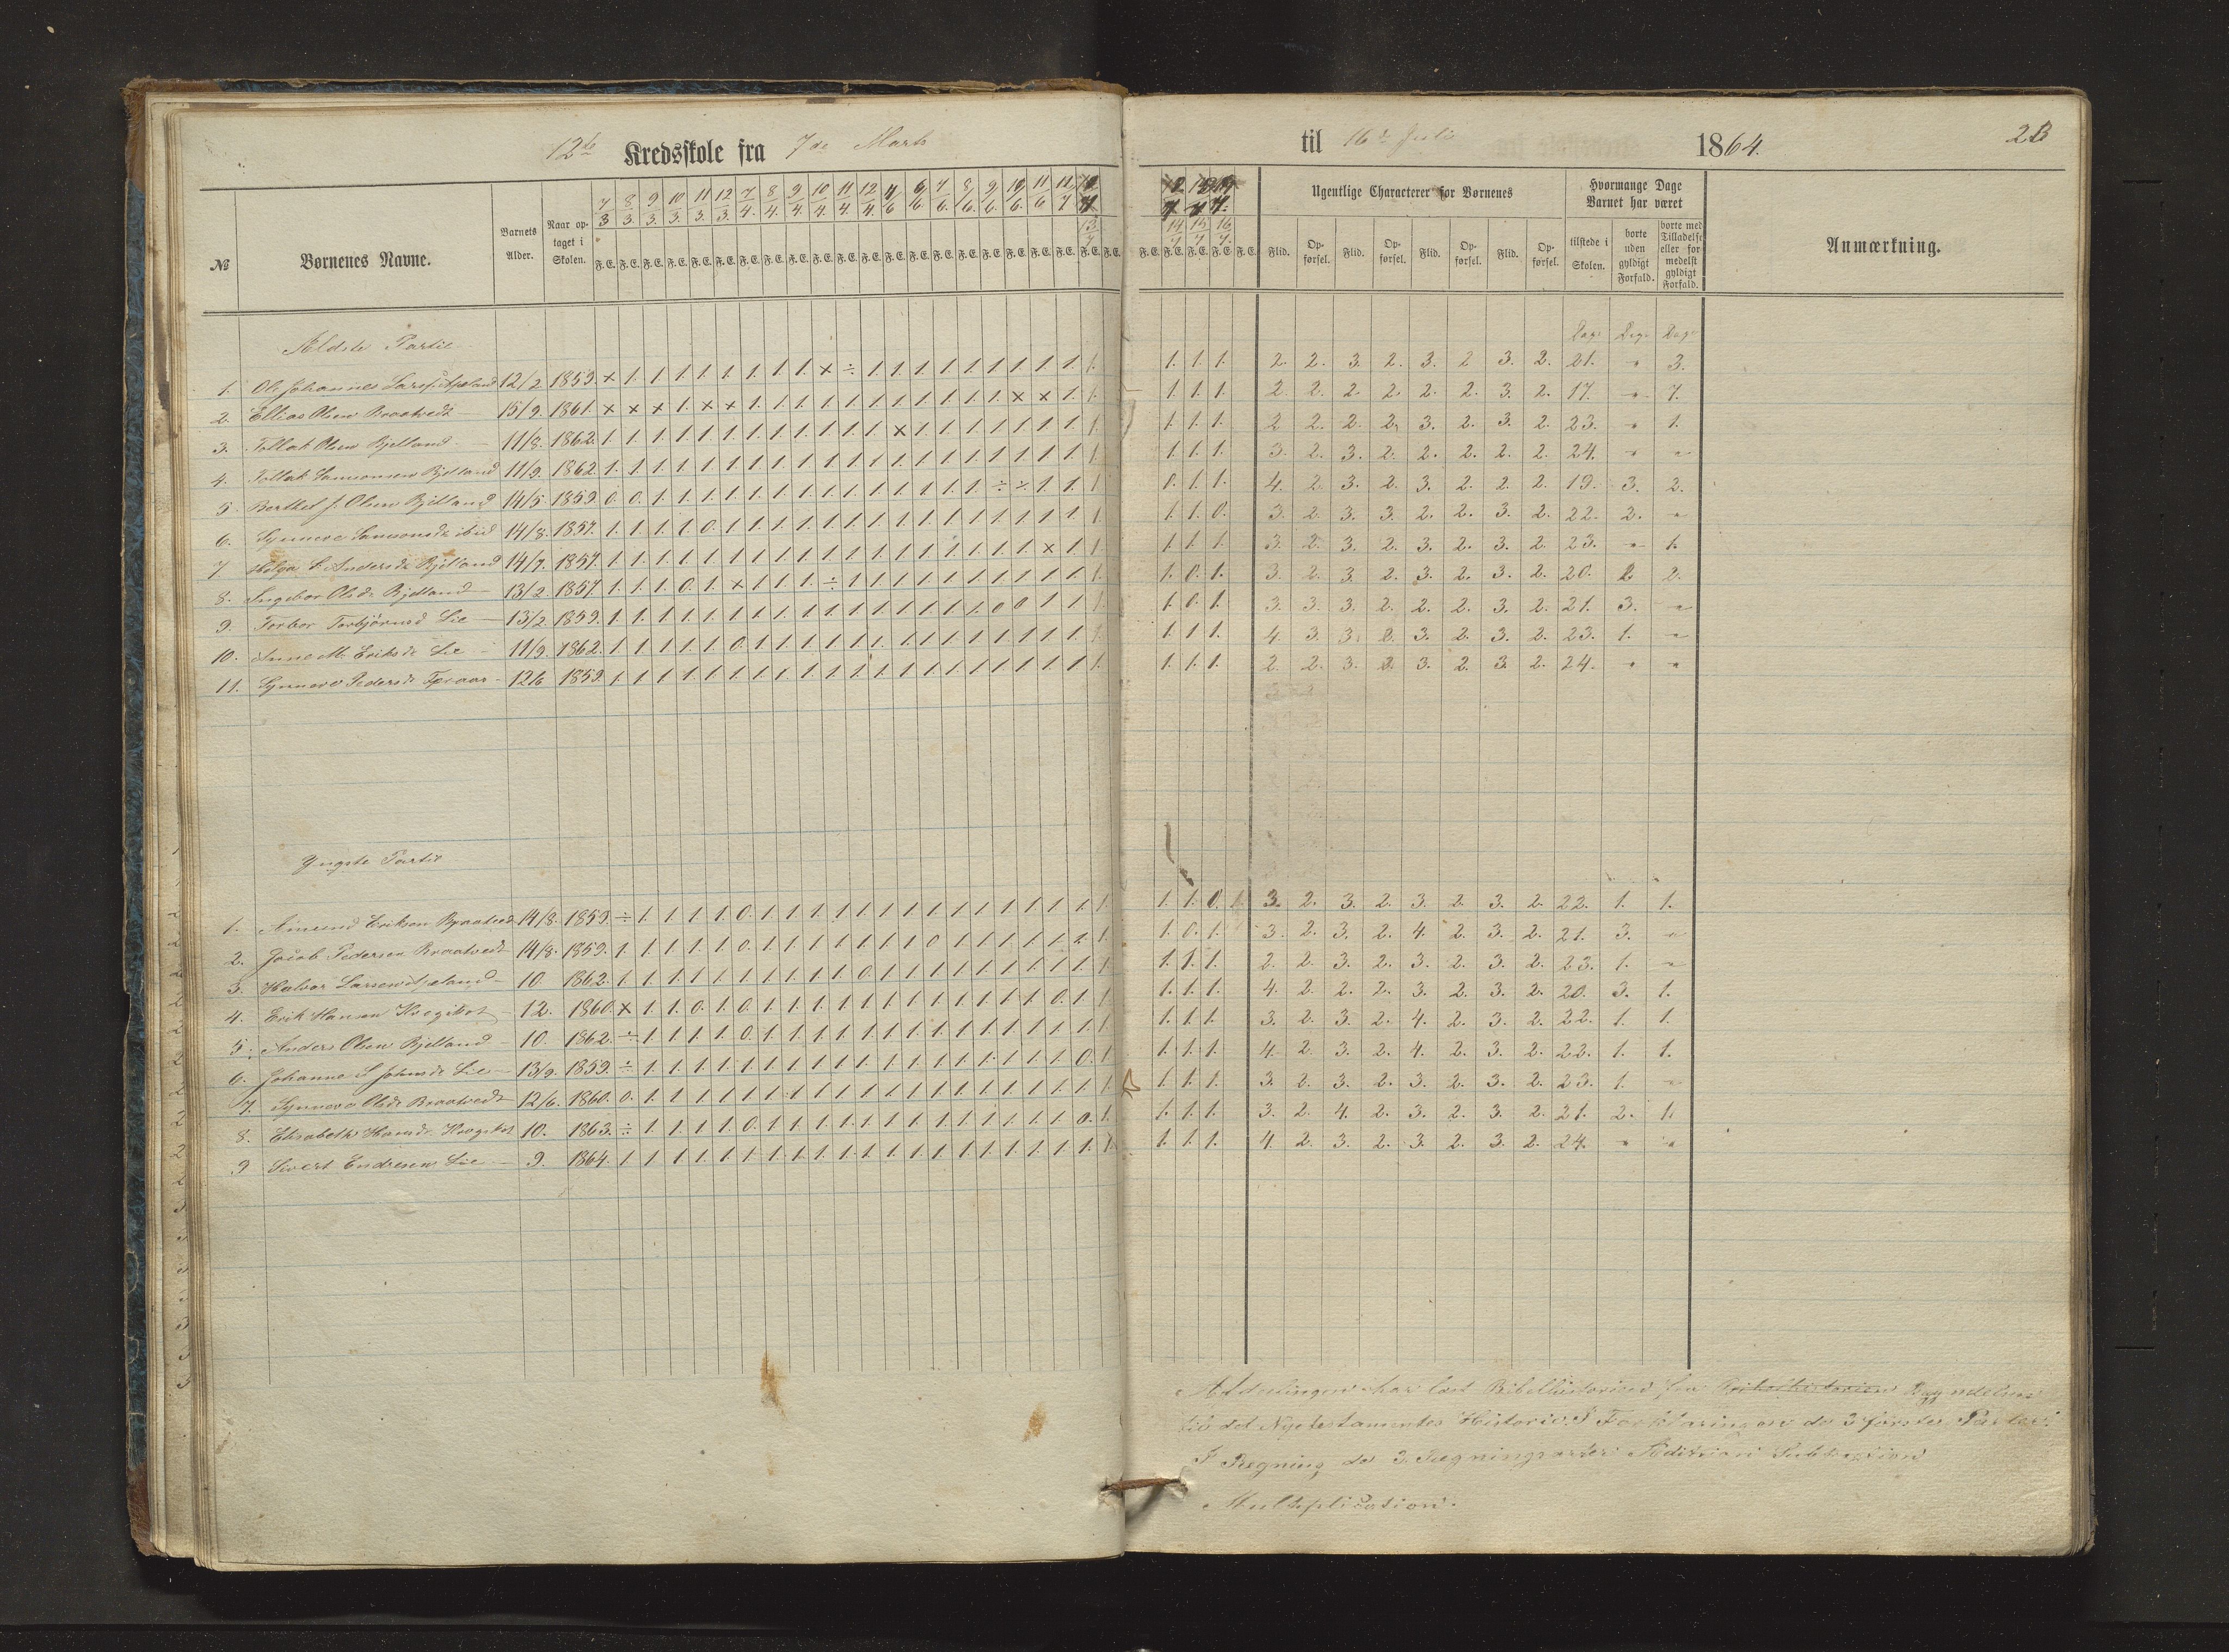 12te Kredsskole fra 7de Marts
til 16de Juli 1864.
№ Børnenes Navne. Barnets Alder. Naar optaget i Skolen. 7/3 8/3 9/3. 10/3. 11/3. 12/3. 7/4. 8/4. 9/4. 10/4. 11/4. 12/4. 4/6 6/6. 7/6. 8/6. 9/6. 10/6. 11/6 11/7 13/7 14/7 15/7 16/7.
F. E.
Ugentlige Characterer for Børnenes
Flid. Opførsel. Flid. Opførsel. Flid. Opførsel. Flid. Opførsel.
Hvormange Dage Barnet har været
tilstede i Skolen. borte uden gyldigt Forfald. borte med Tilladelse eller formedelst gyldigt Forfald.
Anmærkning.
Ældste Partie Dag. Dag. Dag.
1. Ole Johannes 12/2. 1859. × 1. 1. 1. 1. 1. 1. 1. 1. × ÷ 1. 1. 1. 1. 1. 1. 1. 1. 1. 1. 1. 1. 1. 2. 2. 3. 2. 3. 2 3. 2. 21. " 3.
2. Ellias Olsen Braatvedt 15/9. 1861. × × × 1. × × 1. 1. 1. 1. 1. 1. 1. 1. 1. 1. 1. × × 1. 1. 1. 1. 1. 2. 2. 2. 2. 2. 2. 3. 2. 17. " 7.
3. Tollak Olsen Bjelland 11/8. 1862. 1. 1. 1. 1. 1. 1. 1. 1. 1. 1. 1. 1. × 1. 1. 1. 1. 1. 1. 1. 1. 1. 1. 1. 2 2. 2. 2. 3. 2. 3. 2. 23. " 1.
4. Tollak Samsonsen Bjelland 11/9. 1862. 1. 1. 1. 1. 1. 1. 1. 1. 1. 1. 1. 1. 1. 1. 1. 1. 1. 1. 1. 1. 1. 1. 1. 1. 3. 2. 3. 2. 2. 2. 2. 2. 24. " "
5. Berthel J. Olsen Bjelland 14/5 1859. 0. 0. 1. 1. 1. 1. 1. 1. 1. 1. 1. 1. 1. 1. 1. 1. ÷ ÷ 1. 1. 1. 0. 1. 1. 4. 2. 3. 2. 3. 2. 2. 2. 19. 3. 2.
6. Synneve Samsonsdr ibid 14/8. 1857. 1. 1. 1. 1. 0. 1. 1. 1. 1. 1. 1. 1. 1. 1. 1. 1. 1. 1. 1. 1. 1. 1. 1. 0. 3. 2. 3. 3. 2. 2. 3. 2. 22. 2. "
7 Helga Andersdr Bjelland 14/7. 1857. 1. 1. 1. 1. 1. 1. 1. 1. 1. 1. 1. 1. 1. 1. 1. 1. 1. 1. × 1. 1. 1. 1. 1. 3. 2. 3. 2. 3. 2. 3. 2. 23. " 1.
8. Ingebor Olsdr Bjelland 13/2. 1857. 1. 1. 1. 0. 1. × 1. 1. 1. ÷ 1. 1. 1. 1. 1. 1. 1. 1. 1. 1. 1. 1. 0. 1. 3. 2. 3. 2. 3. 2. 3. 2. 20. 2 2.
9. Torbor Torbjørnsd Lie 13/2. 1859. 1. 1. 1. 1. 1. 1. 1. 1. 1. 1. 1. 1. 1. 1. 1. 1. 0 0 1. 1. 1. 1. 0. 1. 3. 3. 3. 2. 2. 2. 3. 2. 21. 3. "
10. Anne M. Eriksdr Lie 11/9. 1862. 1. 1. 1. 1. 1. 0. 1. 1. 1. 1. 1. 1. 1. 1. 1. 1. 1. 1. 1. 1. 1. 1. 1. 1. 4. 3. 3. 2. 3. 2. 3. 2. 23. 1. "
11. Synneve Pedersdr 12/6 1859. 1. 1. 1. 1. 1. 1. 1. 1. 1. 1. 1. 1. 1. 1. 1. 1. 1. 1. 1. 1. 1. 1. 1. 1. 2. 2. 3. 2. 3. 2. 3. 2. 24. " "
Yngste Partie
1. Amund Erikson Braatvedt 14/8. 1859. ÷ 1. 1. 1. 1. 0. 1. 1. 1. 1. 1. 1. 1. 1. 1. 1. 1. 1. 1. 1. 1. 1. 1. 0. 3. 2. 3. 2. 3. 2. 3. 2. 22. 1. 1.
2. Jacob Pedersen Braatvedt 14/8. 1859. 1. 1. 1. 1. 1. 0. 1. 1. 1. 1. 1. 1. 1. 0 1. 1. 1. 1. 1. 1. 1. 1. 0. 1. 3. 2. 3. 2. 4. 2. 3. 2. 21. 3. "
3. Halvor Larsen 10. 1862. 1. 1. 1. 1. 1. 1. 1. 1. 1. 1. 0. 1. 1. 1. 1. 1. 1. 1. 1. 1. 1. 1. 1. 1. 2. 2. 3. 2. 3. 2. 3. 2. 23. 1. "
4. Erik Hansen 12. 1860. × 1. 1. 0. 1. 0. 1. 1. 1. 1. 1. 1. 1. 1. 1. 1. 1. 1. 0. 1. 1. 1. 1. 1. 4. 2. 2. 2. 3. 2. 3. 2. 20. 3. 1.
5. Anders Olsen Bjelland 10. 1862. ÷ 1. 1. 1. 1. 0. 1. 1. 1. 1. 1. 1. 1. 1. 1. 1. 1. 1. 1. 1. 1. 1. 1. 1. 3. 2. 3. 2. 4. 2. 3. 2. 22. 1. 1.
6. Johanne S Johnsdr Lie 13/9. 1859. ÷ 1. 1. 1. 1. 1. 1. 1. 1. 1. 1. 1. 1. 1. 1. 1. 1. 1. 1. 0. 1. 1. 1. 1. 4. 2. 3. 2. 4. 2. 3. 2. 22. 1. 1.
7. Synneve Olsdr Braatvedt 12/6. 1860. 0. 1. 1. 1. 1. 1. 1. 1. 1. 1. 1. 1. 1. 1. 1. 1. 1. 1. 1. 1. 1. 1. 1. 1. 3. 2. 3. 2. 3. 2. 3. 2. 23. 1. "
8. Elisabeth Hansdr 10. 1863. ÷ 1. 1. 1. 1. 0. 1. 1. 1. 1. 1. 1. 1. 1. 1. 1. 1. 1. 1. 0. 1. 1. 1. 1. 3. 2. 4. 2. 3. 2. 3. 2. 21. 2. 1.
9 Sivert Endresen Lie 9. 1864. 1. 1. 1. 1. 1. 1. 1. 1. 1. 1. 1. 1. 1. 1. 1. 1. 1. 1. 1. 1. 1. 1. 1. 1. 4. 2. 3. 2. 3. 2. 3. 2. 24. " "
Afdelingen har læst Bibelhistorien fra Bibelhistoriens Begyndelse
til det Nye testamentes Historie. I Forklaringen de 3 første Parter.
I Regning de 3 Regningsarter Addition Subtraction
Multiplication.